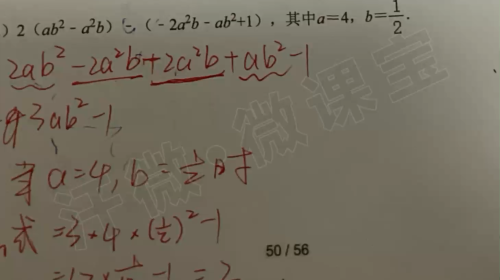 ) 2（ab²－a²b）－（－2a²b－ab²+1），其中a=4，b=1/2.
2ab²-2a²b+2a²b+ab²-1
3ab²-1
当a=4,b=1/2时
式=3×4×(1/2)²-1
微课宝
50 / 56